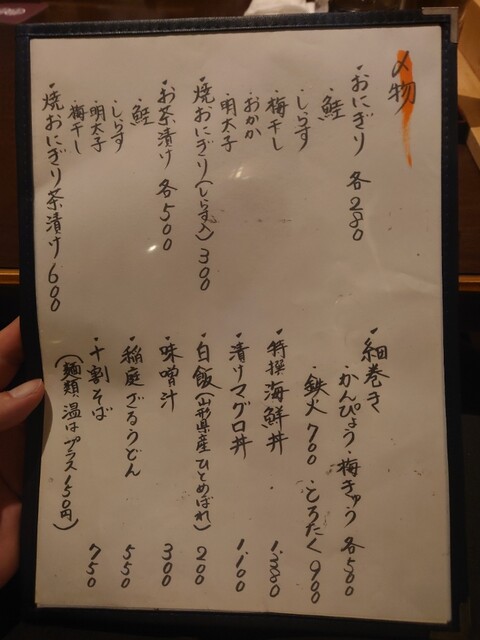 〆物
・おにぎり 各280
鮭
・しらす
・梅干し
・おかか
・明太子
・焼おにぎり(しらす入) 300
・お茶漬け 各500
・鮭
・しらす
・明太子
・梅干し
・焼おにぎり茶漬け 600
・細巻き
・かんぴょう・梅きゅう 各500
・鉄火 700 ・とろたく 900
・特撰海鮮丼 1.380
・漬けマグロ丼 1.100
・白飯(山形県産ひとめぼれ) 200
・味噌汁 300
・稲庭ざるうどん 550
・十割そば 750
(麺類温はプラス150円)